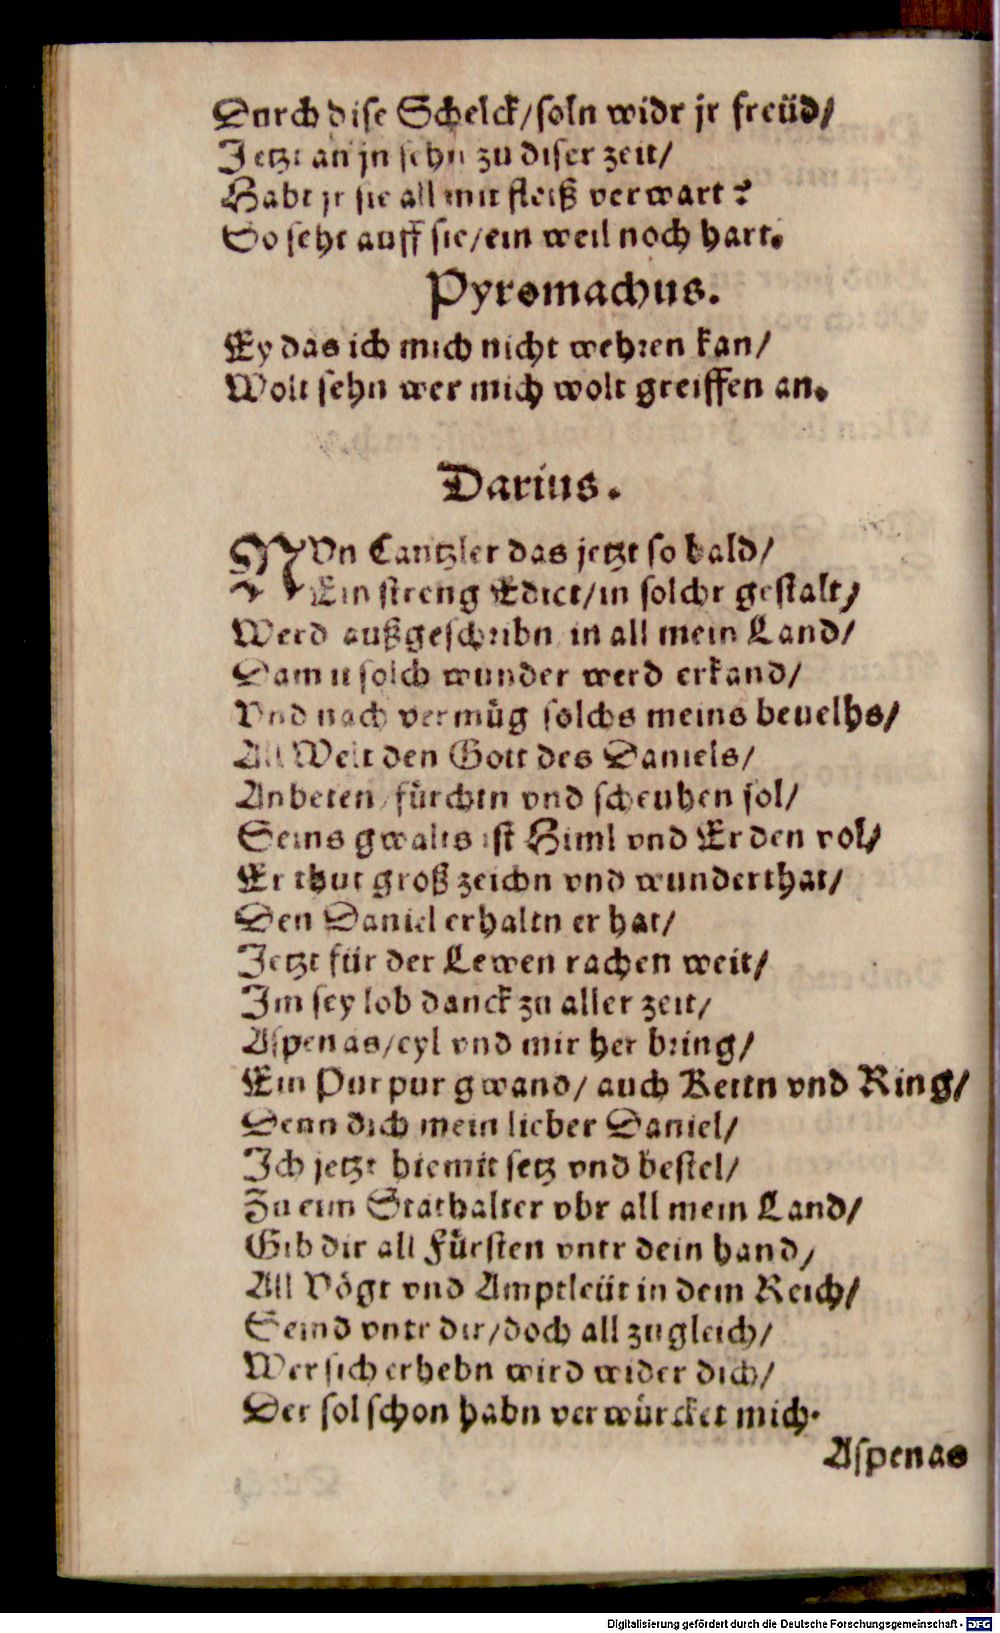 Durch dise Schelck/soln widr jr freüd/
Jetzt an jn sehn zu diser zeit/
Habt jr sie all mit fleiß verwart?
So seht auff sie/ein weil noch hart.
Pyromachus.
Ey das ich mich nicht wehren kan/
Wolt sehn wer mich wolt greiffen an.
Darius.
NVn Cantzler das jetzt so bald/
Ein streng Edict/in solchr gestalt/
Werd außgeschribn in all mein Land/
Damit solch wunder werd erkand/
Vnd nach vermüg solchs meins beuelhs/
All Welt den Gott des Daniels/
Anbeten/fürchtn vnd scheuhen sol/
Seins gwalts ist Himl vnd Erden vol/
Er thut groß zeichn vnd wunderthat/
Den Daniel erhaltn er hat/
Jetzt für der Lewen rachen weit/
Im sey lob danck zu aller zeit/
Aspenas/eyl vnd mir her bring/
Ein Purpur gwand/ auch Kettn vnd Ring/
Denn dich mein lieber Daniel/
Ich jetzt hiemit setz vnd bestel/
Zu eim Stathalter vbr all mein Land/
Gib dir all Fürsten vntr dein hand/
All Vögt vnd Amptleüt in dem Reich/
Seind vntr dir/doch all zugleich/
Wer sich erhebn wird wider dich/
Der sol schon habn verwürcket mich.
Aspenas
Digitalisierung gefördert durch die Deutsche Forschungsgemeinschaft - DFG